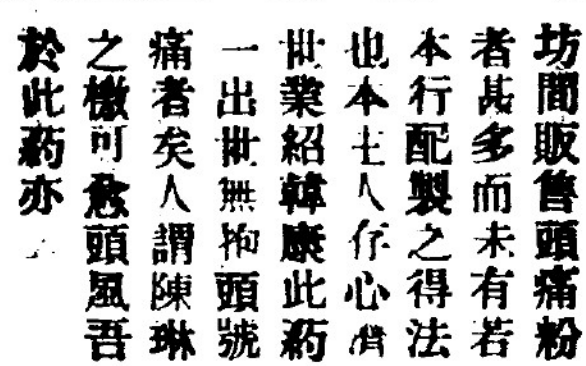 坊間販售頭痛粉
者甚多而未有若
本行配製之得法
也本主人存心濟
世業紹韓康此葯
一出世無抱頭號
痛者矣人謂陳琳
之檄可愈頭風吾
於此葯亦